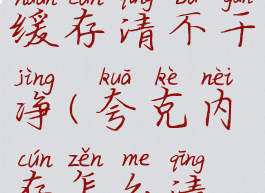 huǎn cún qīng bù gān
缓存清不干
jìng kuā kè nèi
净(夸克内
cún zěn me qīng
存怎么清